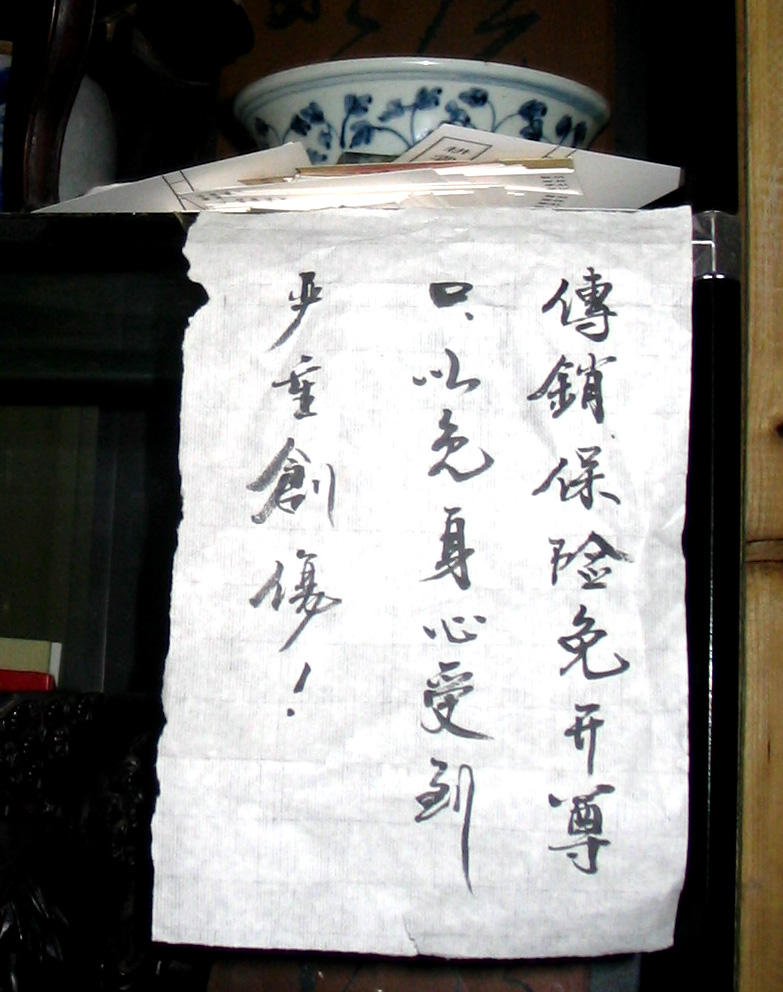 傳銷保险免开尊
口.以免身心受到
严重創傷！